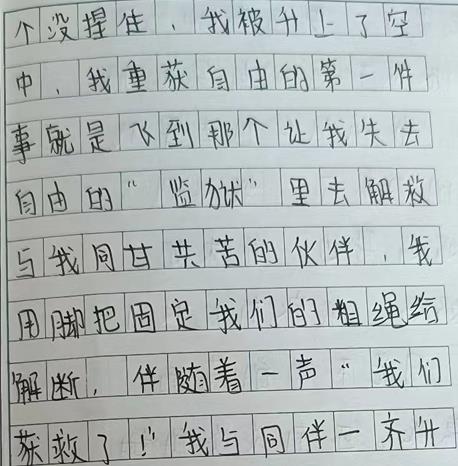 个没捏住，我被升上了空
中，我重获自由的第一件
事就是飞到那个让我失去
自由的“监狱”里去解救
与我同甘共苦的伙伴，我
用脚把固定我们的粗绳给
解断，伴随着一声“我们
获救了！”我与同伴一齐升